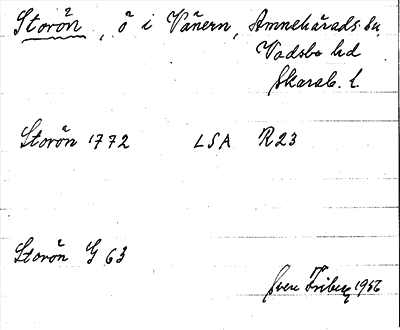 Storön, ö i Vänern, Amnehärads sn,
Vadsbo hd
Skarab. l.
Storön 1772 LSA R23
Storön G 63
Sven Friberg 1956